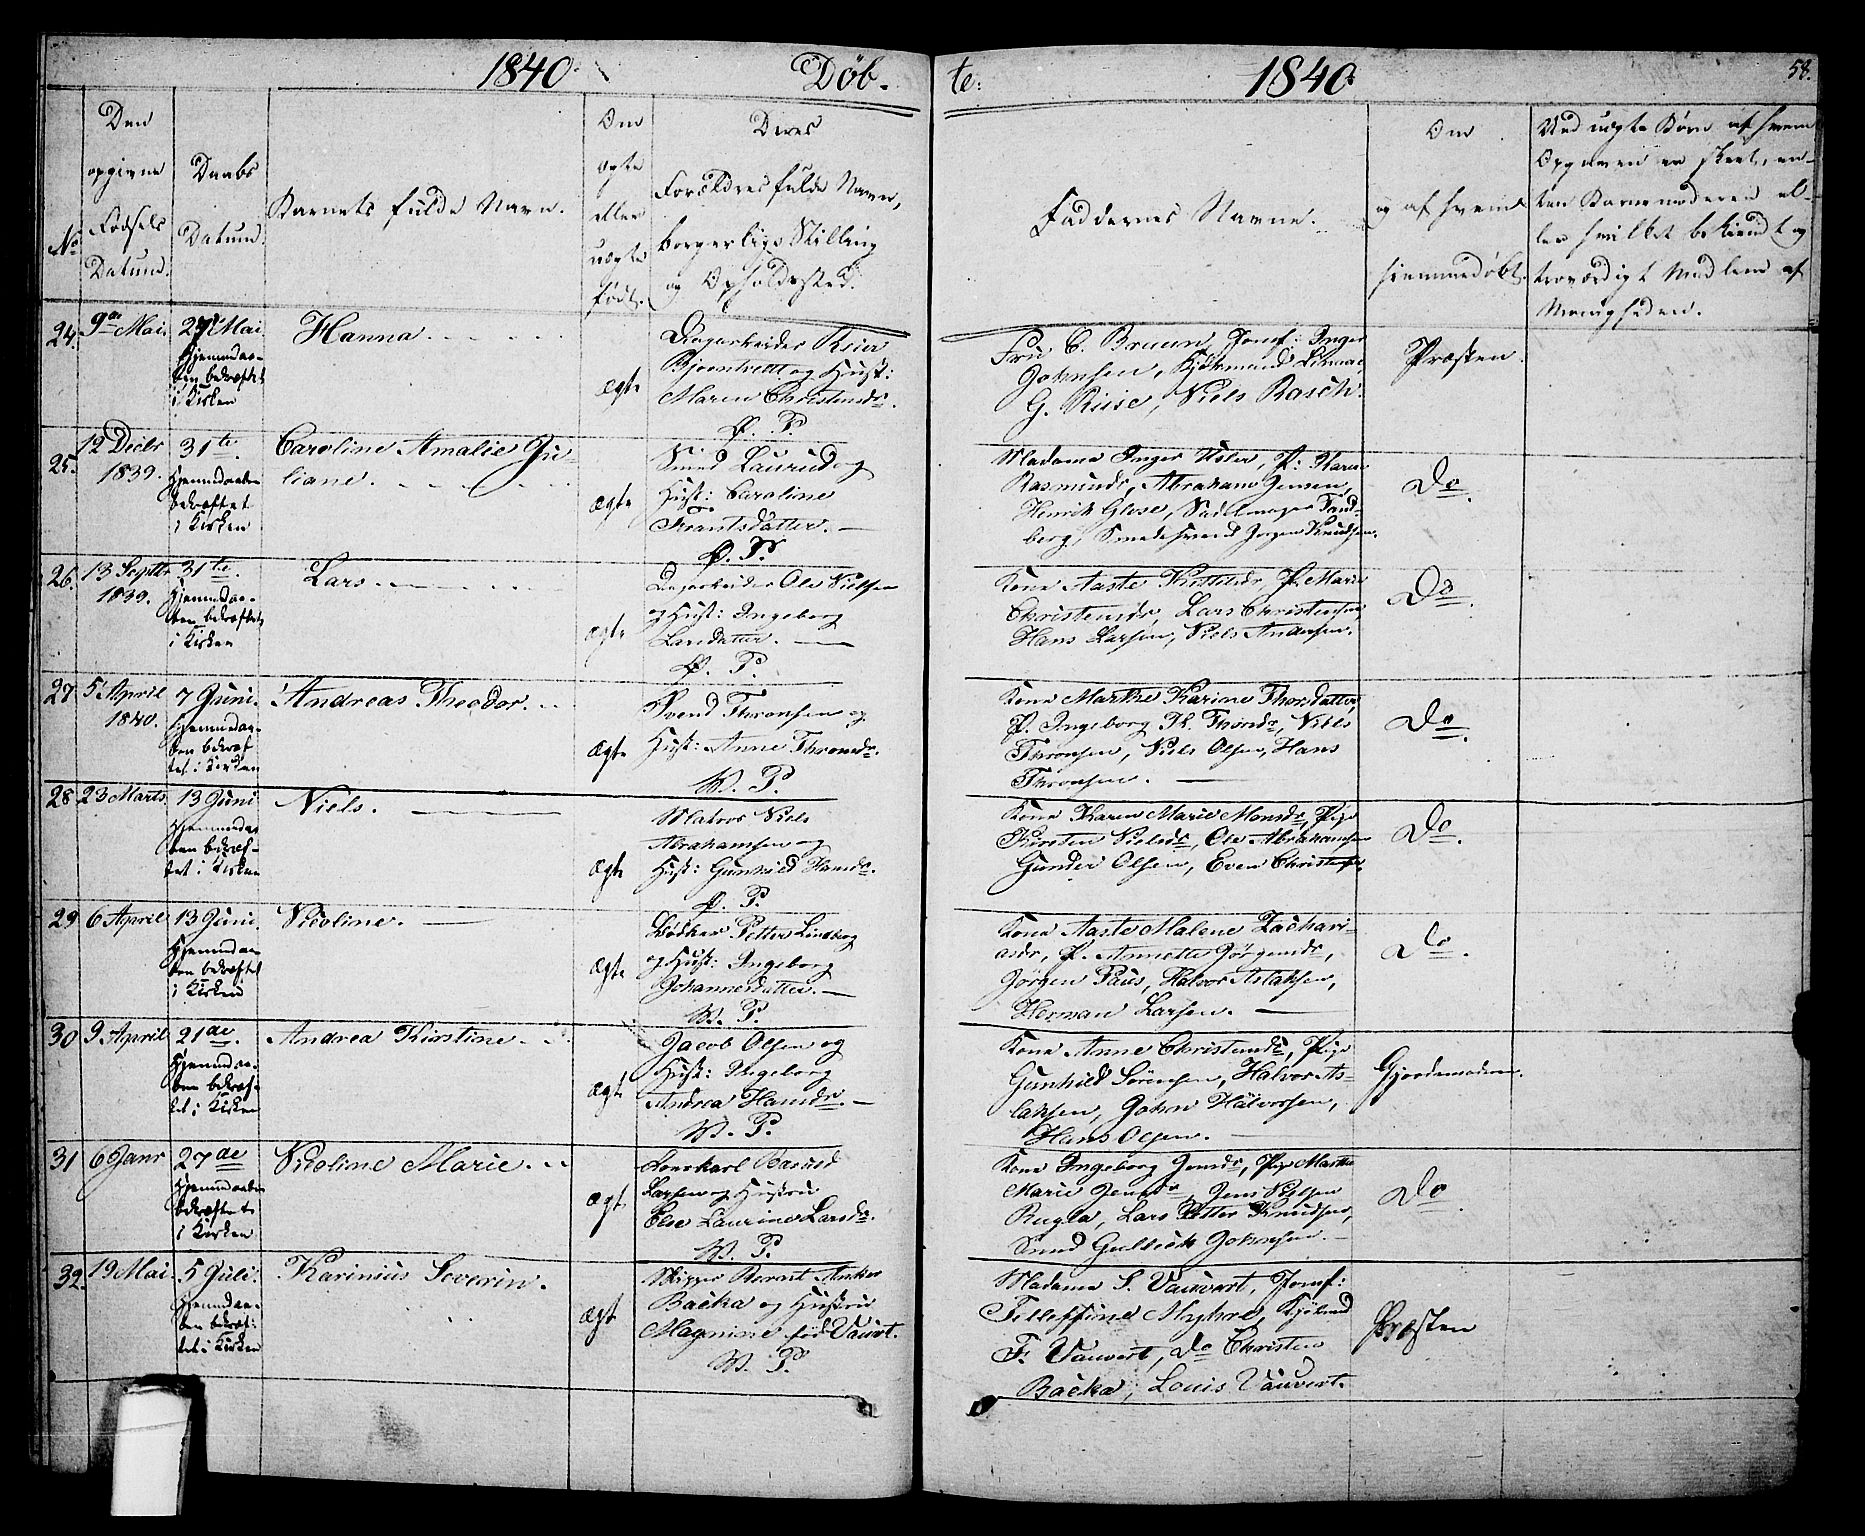 1840. Døb-
te: 1840. 58.
No
Den
opgivne
Fødsels
Datum.
Daabs
Datum.
Barnets fulde Navn.
Om
ægte
eller
uægte
født.
Deres
Forældres fulde Navn,
borgerlige Stilling
og Opholdssted.
Faddernes Navne.
Om
og af hvem
hjemmedøbt.
Ved uægte Børn af hvem
Opgaven er skeet, en-
ten Barnemoderen el-
ler hvilket bekiendt og
troværdigt Medlem af
Menigheden.
24. 9de Mai.
27 Mai
Hjemmedaa-
ben bekræftet
i Kirken
Hanna
Ægte
Dagarbeider
og Hust:
Maren Christensdr.
Ø. P.
Fru C. Bruun, Jomf: Inger
Johnsen, Kjøbmand
G. Riise, Niels Rasch.
Præsten.
25. 12 Decbr
1839.
31te.
Hjemmedaaben
bekræftet
i Kirken
Caroline Amalie Ju-
liane.
Ægte
Smed Laurud og
Hust: Caroline
Frantsdatter.
Ø. P.
Madame Inger Usler, P: Karen
Rasmusdr, Abraham Jensen,
Henrik Glose, Sadelmager Sand-
berg, Smedesvend Jørgen Knudsen.
Do.
26. 13 Septbr
1839.
31te.
Hjemmedaa-
ben bekræftet
i Kirken
Lars
Ægte
Dagarbeider Ole Nielsen
og Hust: Ingeborg
Larsdatter.
Ø. P.
Kone Aaste Kittilsdr, P. Marie
Christensdr, Lars Christensen,
Hans Larsen, Niels Andersen.
Do.
27. 5 April
1840.
7 Juni.
Hjemmedaa-
ben bekræf-
tet i Kirken
Andreas Theodor.
Ægte
Svend Thronsen og
Hust: Anne Thronsdr.
W. P.
Kone Marthe Karine Thorsdatter,
P. Ingeborg Th. Thorsdr, Niels
Thronsen, Niels Olsen, Hans
Thronsen.
Do.
28 23 Marts
13 Juni
Hjemmedaa-
ben bekræf-
tet i Kirken
Niels.
Ægte
Matros Niels
Abrahamsen og
Hust: Gunhild Hansdr.
Ø. P.
Kone Karen Marie Monsdr, Pige
Kirsten Nielsdr, Ole Abrahamsen
Gunder Olsen, Even Christensen.
Do.
29 6 April
13 Juni.
Hjemmedaa-
ben bekræftet
i Kirken
Nicoline.
Ægte
Bødker Petter Lindberg
og Hust: Ingeborg
Johannesdatter.
W. P.
Kone Aaste Malene Zachari-
asdr, P. Annette Jørgensdr,
Jørgen Paus, Halvor Aslaksen,
Herman Larsen.
Do.
30 9 April
21de.
Hjemmedaa-
ben bekræf-
tet i Kirken
Andrea Kirstine.
Ægte
Jacob Olsen og
Hust: Ingeborg
Andrea Hansdr.
W. P.
Kone Anne Christensdr, Pige
Gunhild Sørensen, Halvor As-
laksen, John Halvorsen,
Hans Olsen.
Gjordemoderen.
31 6 Janr
27de
Hjemmedaaben
bekræftet
i Kirken
Nicoline Marie.
Ægt
Larsen og Hustru
Else Laurine Larsdr.
W. P.
Kone Ingeborg Jensdr, Pige Marthe
Marie Jensdr, Jens Nielsen
Rugla, Lars Petter Knudsen,
Smed Gullich Johnsen.
Do.
32. 19 Mai.
5 Juli.
Hjemmedaa-
ben bekræf-
tet i Kirken
Karinius Severin.
Ægt
Skipper Berent Anker
Backa og Hustru
Magnine født Vauvert.
W. P.
Madame S. Vauvert, Jomf:
Tellefine Myhre, Kjøbmd
F. Vauvert, Do Christen
Backa, Louis Vauvert.
Præsten